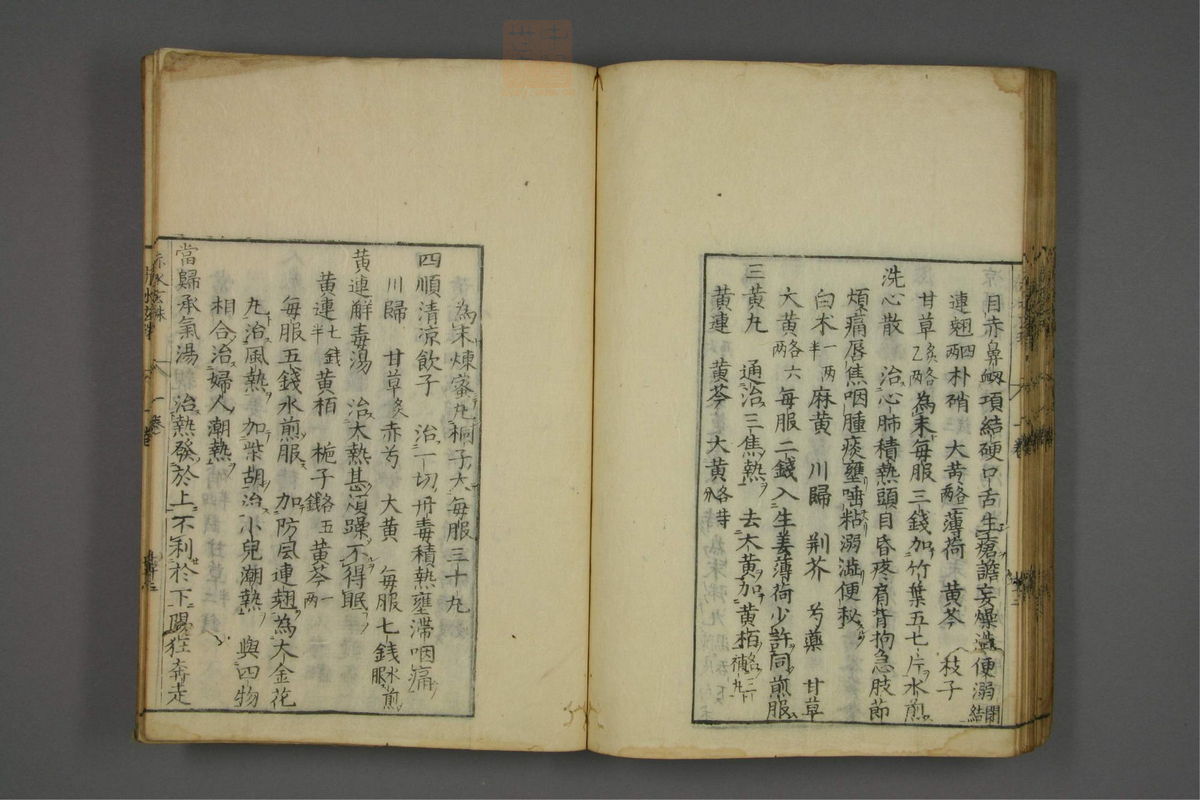 目赤鼻衂項結硬口舌生瘡譫妄燥澁便溺閉結
連翹四兩朴硝 大黄各兩薄荷 黄芩 枝子
甘草炙各乙兩為末毎服三錢加竹葉五七片水煎
洗心散 治心肺積熱頭目昏疼肩背拘急肢節
煩痛唇焦咽腫痰壅唾粘溺澁便秘
白朮一兩半麻黄 川歸 荆芥 芍藥 甘草
大黄各六兩 毎服二錢入生姜薄荷少許同煎服
三黄丸 通治三焦熱 去大黄加黄栢
黄連 黄芩 大黄各等分
為末煉蜜丸桐子大毎服三十丸
四順清凉飲子 治一切丹毒積熱壅滯咽痛
川歸 甘草炙赤芍 大黄 毎服七錢水煎服
黄連解毒湯 治大熱甚煩躁不得眠
黄連七錢半黄栢 梔子各五錢黄芩一兩
毎服五錢水煎服 加防風連翹為大金花
丸治風熱加柴胡治小兒潮熱 與四物
相合治婦人潮熱
當歸承氣湯 治熱發於上不利於下陽狂奔走